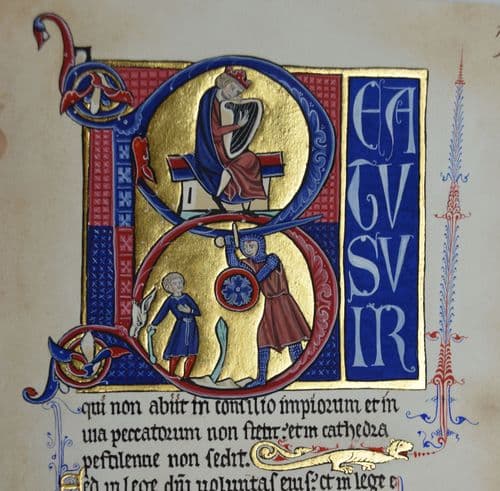 B
EA
TU
SV
IR
qui non abiit in consilio impiorum et in
uia peccatorum non stetit: et in cathedra
pestilentie non sedit.
Sed in lege dñi uoluntas eius: et in lege e